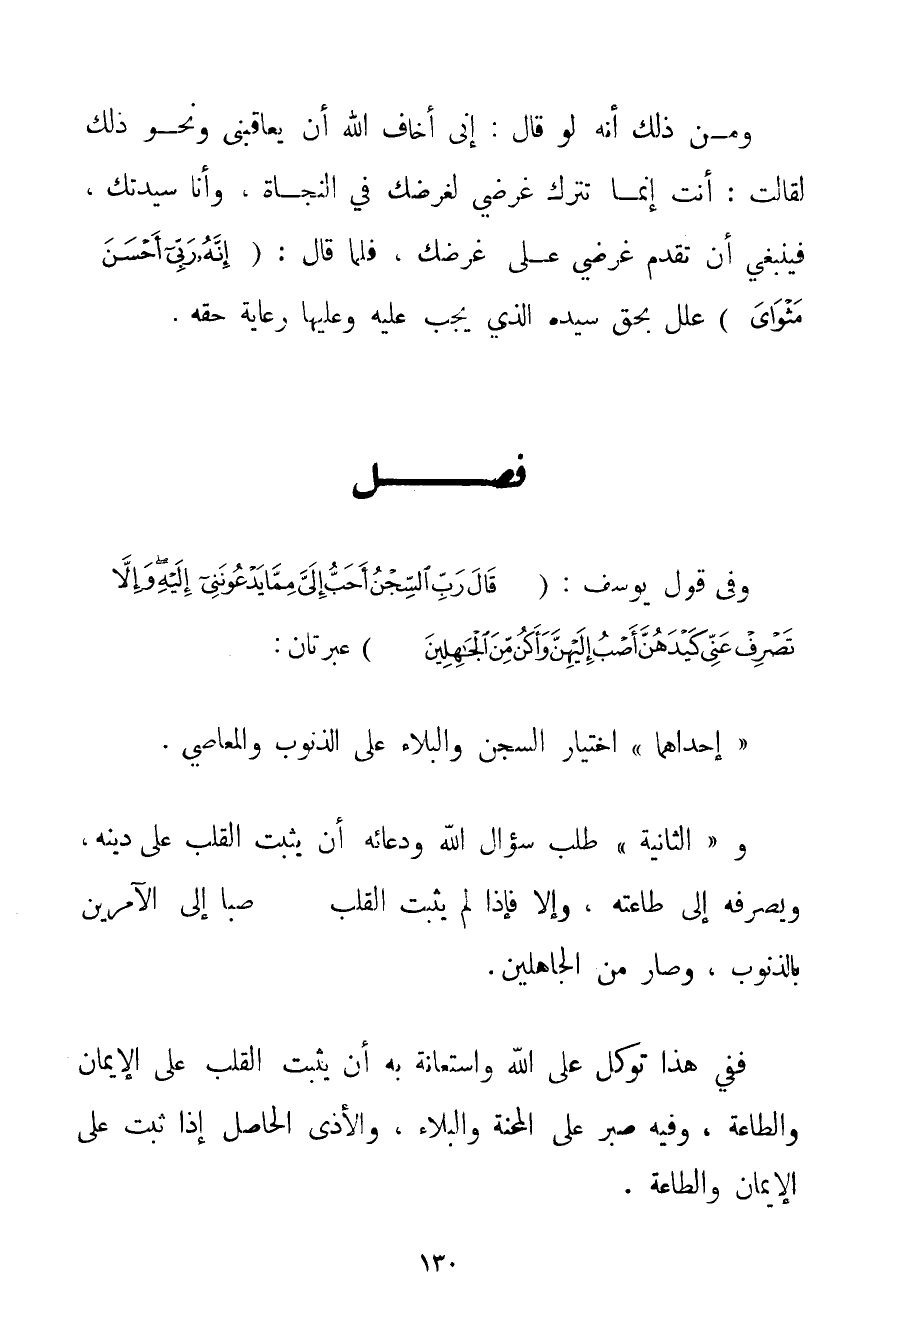 ومن ذلك أنه لو قال : إنى أخاف الله أن يعاقبنى ونحو ذلك
لقالت : أنت إنما تترك غرضي لغرضك في النجاة ، وأنا سيدتك ،
فينبغي أن تقدم غرضي على غرضك ، فلما قال : ( إِنَّهُۥ رَبِّىٓ أَحْسَنَ
مَثْوَاىَ ) علل بحق سيده الذي يجب عليه وعليها رعاية حقه .
فصل
وفى قول يوسف : ( قَالَ رَبِّ ٱلسِّجْنُ أَحَبُّ إِلَىَّ مِمَّا يَدْعُونَنِىٓ إِلَيْهِ ۖ وَإِلَّا
تَصْرِفْ عَنِّى كَيْدَهُنَّ أَصْبُ إِلَيْهِنَّ وَأَكُن مِّنَ ٱلْجَٰهِلِينَ ) عبرتان :
« إحداهما » اختيار السجن والبلاء على الذنوب والمعاصي .
و « الثانية » طلب سؤال الله ودعائه أن يثبت القلب على دينه ،
ويصرفه إلى طاعته ، وإلا فإذا لم يثبت القلب صبا إلى الآمرين
بالذنوب ، وصار من الجاهلين .
ففي هذا توكل على الله واستعانة به أن يثبت القلب على الإيمان
والطاعة ، وفيه صبر على المحنة والبلاء ، والأذى الحاصل إذا ثبت على
الإيمان والطاعة .
١٣٠